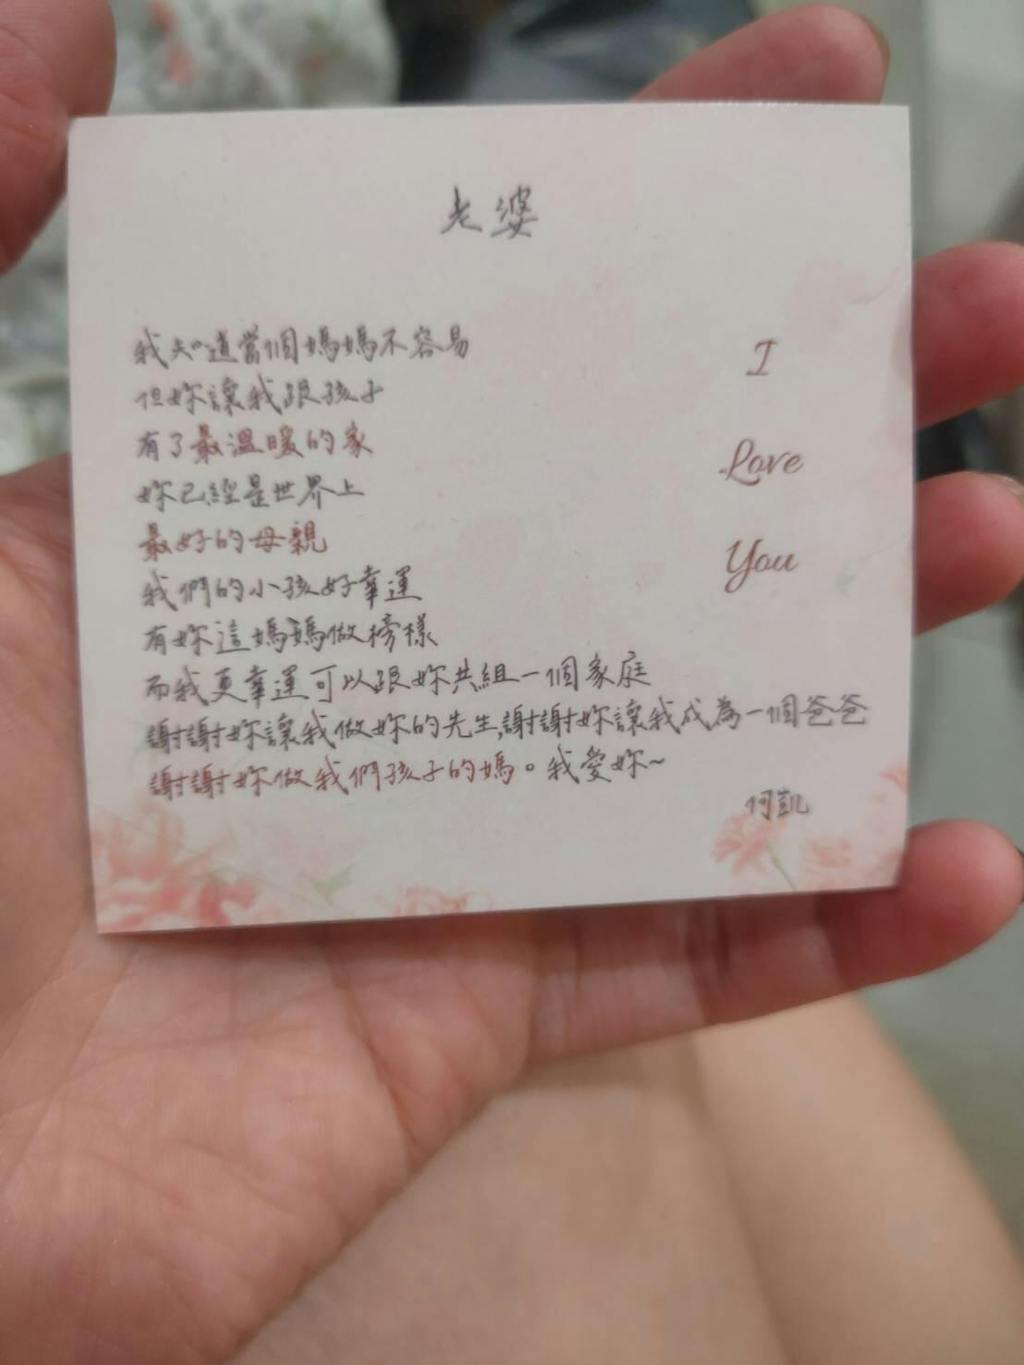 老婆
我知道當個媽媽不容易
但妳讓我跟孩子
有了最溫暖的家
妳已經是世界上
最好的母親
我們的小孩好幸運
有妳這媽媽做榜樣
而我更幸運可以跟妳共組一個家庭
謝謝妳讓我做妳的先生,謝謝妳讓我成為一個爸爸
謝謝妳做我們孩子的媽。我愛妳~
何凱
I
Love
You